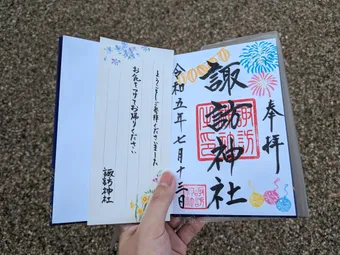 奉拝
諏訪神社
令和五年七月十三日
ようこそご参拝くださいました
お気をつけてお帰りください
諏訪神社